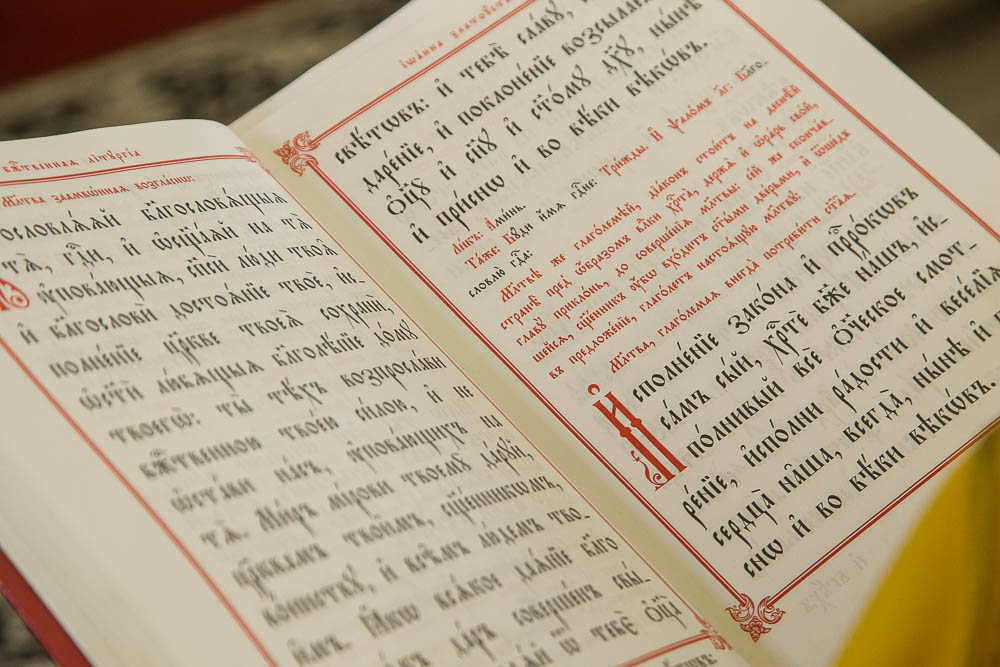 бж҃е́ственная літꙋргі́а
Мл҃тва заамвѡ́нная возгла́снѡ:
ословлѧ́ѧй благословѧ́щыѧ
тѧ̀, гдⷭ҇и, и҆ ѡ҆сщ҃а́ѧй на тѧ̀
ᲂу҆пова́ющыѧ, сп҃сѝ лю́ди твоѧ̑
и҆ бл҃гословѝ достоѧ́нїе твоѐ, и҆с-
полне́нїе цр҃кве твоеѧ̀ сохранѝ,
ѡ҆ст҃ѝ лю́бѧщыѧ бл҃голѣ́пїе до́мꙋ
твоегѡ̀: ты̀ тѣ́хъ возпросла́ви
бж҃е́ственною твое́ю си́лою, и҆ не
ѡ҆ста́ви на́съ, ᲂу҆пова́ющихъ на
тѧ̀. Ми́ръ мі́рови твоемꙋ̀ да́рꙋй,
цр҃квамъ твои̑мъ, сщ҃е́нникѡмъ,
во́инствꙋ, и҆ всѣ̑мъ лю́демъ тво-
и̑мъ. Ꙗ҆́кѡ всѧ́кое даѧ́нїе бл҃го
да́ръ соверше́нъ свы́-
ѿ тебє̀ ѻ҆ц҃а̀
і҆ѡа́нна златоꙋ́стагѡ
свѣ́тѡвъ: и҆ тебѣ̀ сла́вꙋ, и҆
даре́нїе, и҆ поклоне́нїе возсыла́емъ
ѻ҆ц҃ꙋ̀ и҆ сн҃ꙋ и҆ ст҃о́мꙋ дх҃ꙋ, ны́нѣ
и҆ при́снѡ и҆ во вѣ́ки вѣкѡ́въ.
Ли́къ: А҆ми́нь.
Та́же: Бꙋ́ди и҆́мѧ гдⷭ҇не: Три́жды. И҆ ѱало́мъ л҃г: Бл҃го-
словлю̀ гдⷭ҇а:
Мл҃твѣ же глаго́лемѣй, дїа́конъ стои́тъ на деснѣ́й
странѣ̀ пред̾ ѡ҆́бразомъ влⷣки хрⷭ҇та̀, держѧ̀ и҆ ѡ҆ра́рь сво́й,
главꙋ̀ прикло́нь, до соверше́нїѧ мл҃твы: се́й же сконча́в-
шейсѧ, сщ҃е́нникъ ᲂу҆́бѡ вхо́дитъ ст҃ы́ми дверьмѝ, и҆ ѿше́дъ
въ предложе́нїе, глаго́летъ настоѧ́щꙋю мл҃твꙋ:
Мл҃тва, глаго́лемаѧ внегда̀ потреби́ти ст҃а̑ѧ.
И҆сполне́нїе зако́на и҆ прⷪ҇ро́кѡвъ
са́мъ сы́й, хрⷭ҇тѐ бж҃е на́шъ, и҆с-
по́лнивый всѐ ѻ҆те́ческое смот-
ре́нїе, и҆спо́лни ра́дости и҆ весе́лїѧ
сердца̀ на̑ша, всегда̀, ны́нѣ и҆
снѡ и҆ во вѣ́ки вѣкѡ́въ.